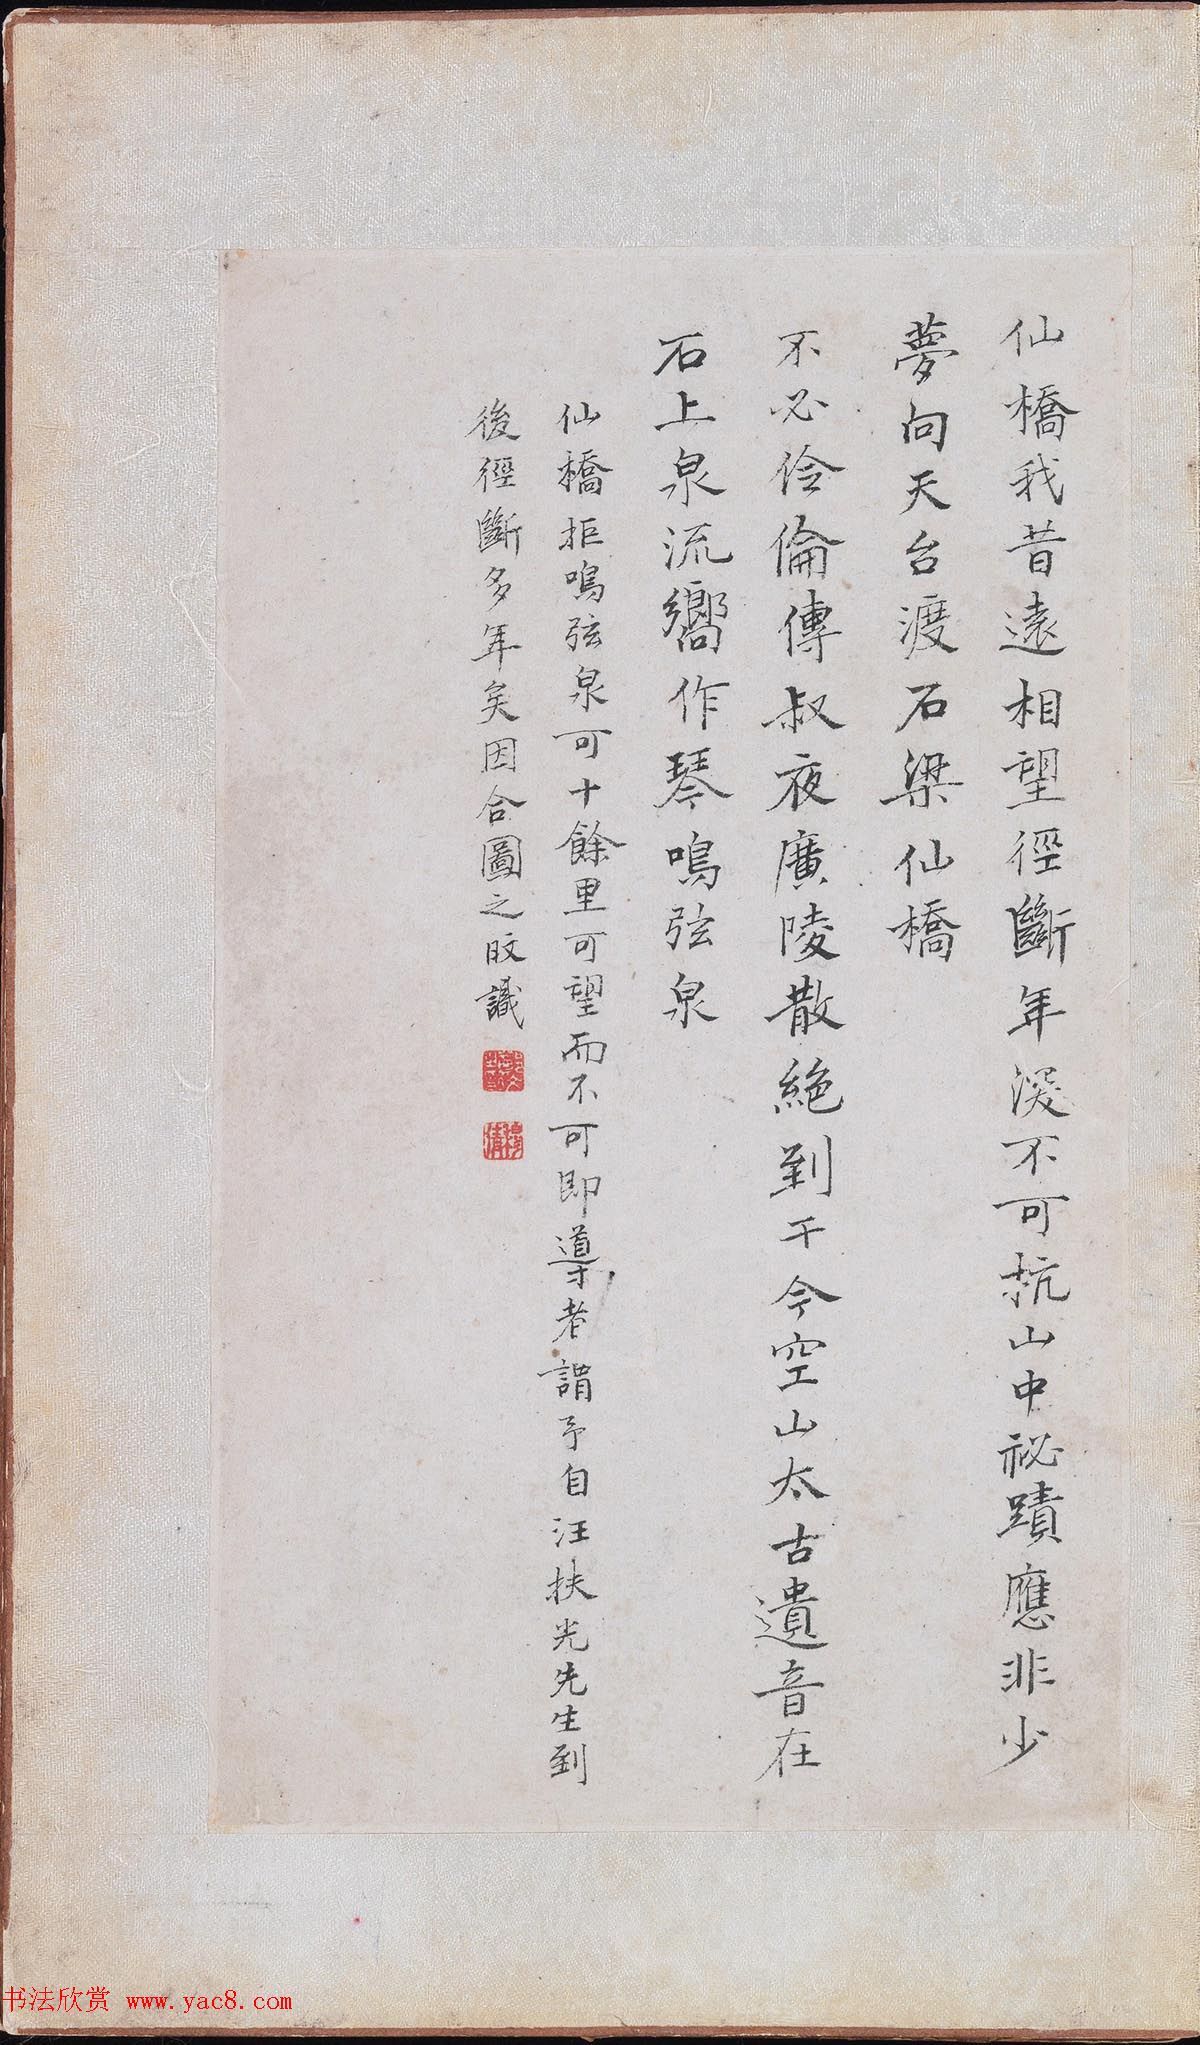 仙橋我昔遠相望徑斷年深不可抗山中祕蹟應非少
夢向天台渡石梁仙橋
不必伶倫傳叔夜廣陵散絕到于今空山太古遺音在
石上泉流嚮作琴鳴弦泉
仙橋拒鳴弦泉可十餘里可望而不可即導者謂予自汪扶光先生到
後徑斷多年矣因合圖之旼識
书法欣赏 www.yac8.com